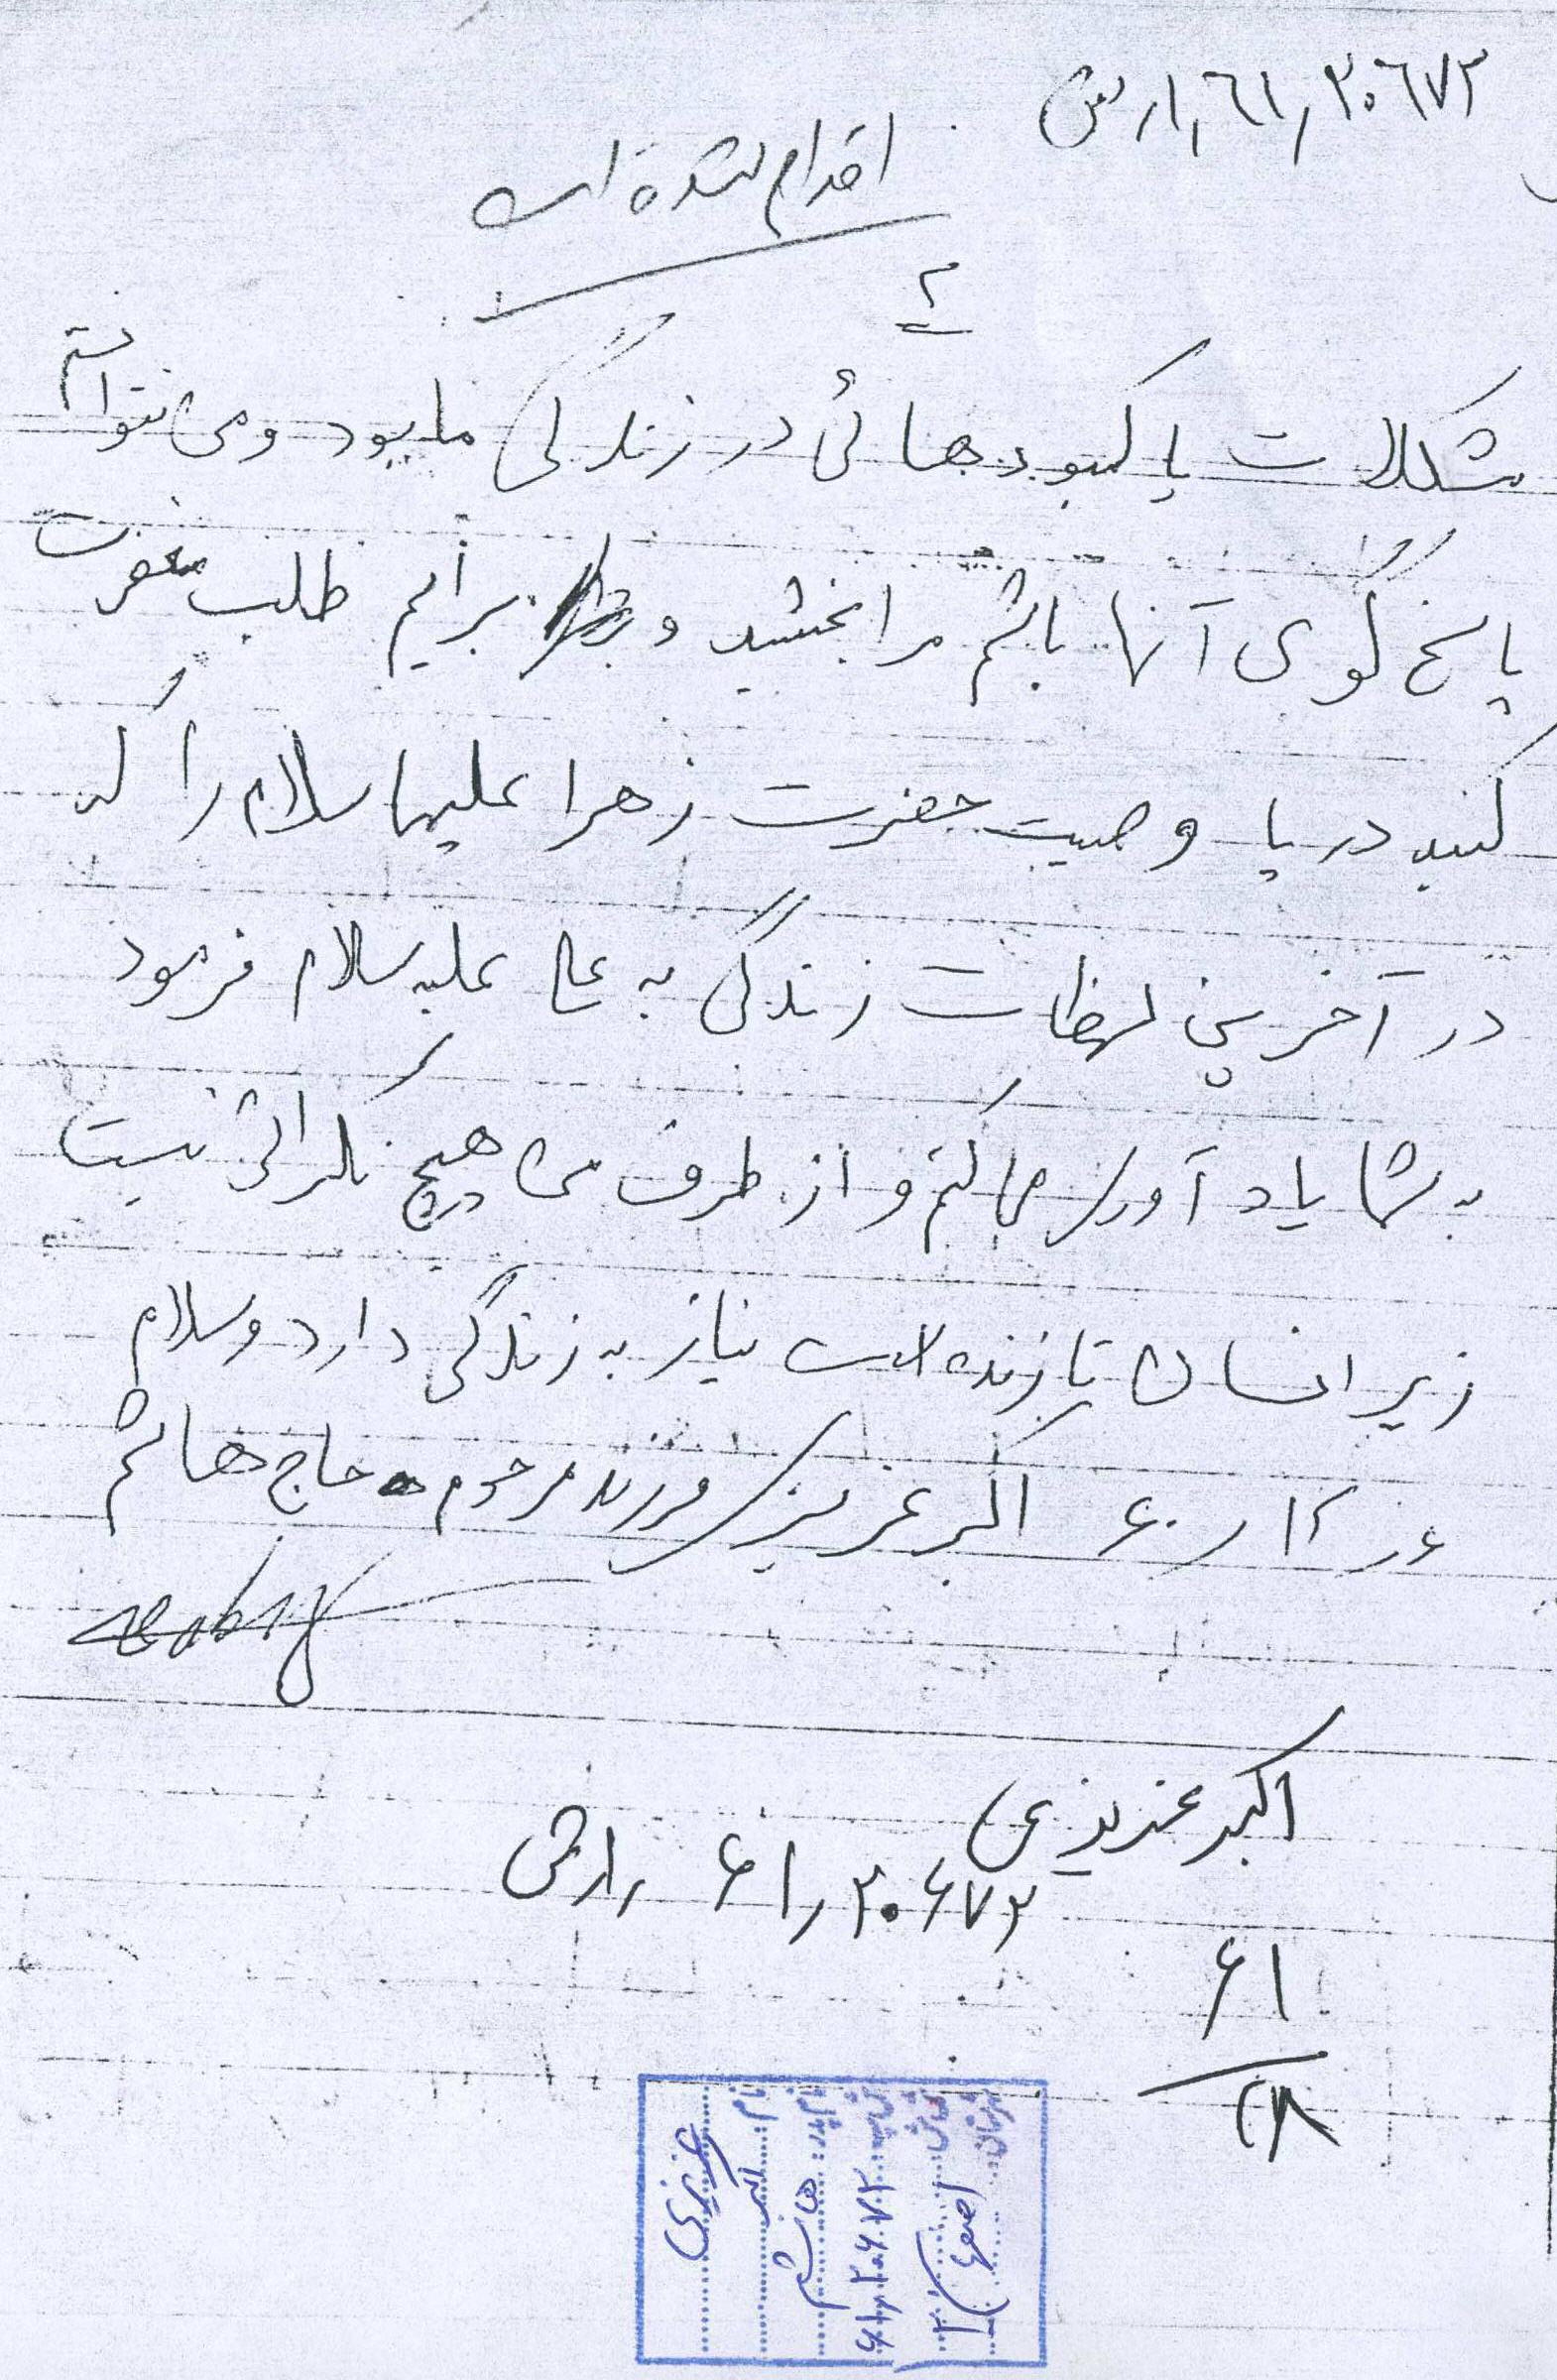 ۳۰۶۷۳ ر ۶۱ ر ۱ ر ش
اقدام شده است
۲
مشکلات یا کمبودهائی در زندگی ما بود و می نتوانستم
پاسخ گوی آنها باشم مرا بخشید و برایم طلب مغفرت
کنید در پا وصیت حضرت زهرا علیها سلام را که
در آخرین لهظات زندگی به علی علیه سلام فرمود
به شما یاد آوری می کنم و از طرف من هیچ نگرانی نیست
زیر انسان تا زنده است نیاز به زندگی دارد وسلام
۶۰ ر ۱۲ ر ۶ اکبر عزیزی فرزند مرحوم حاج هاشم
اکبر عزیزی
۳۰۶۷۳ ر ۶۱ ر ۱ ر ش
۶۱
۲۸
عزیزی
نام: اکبر
نام پدر: هاشم
۶۱,۳۰۶۷۳
اصفهان